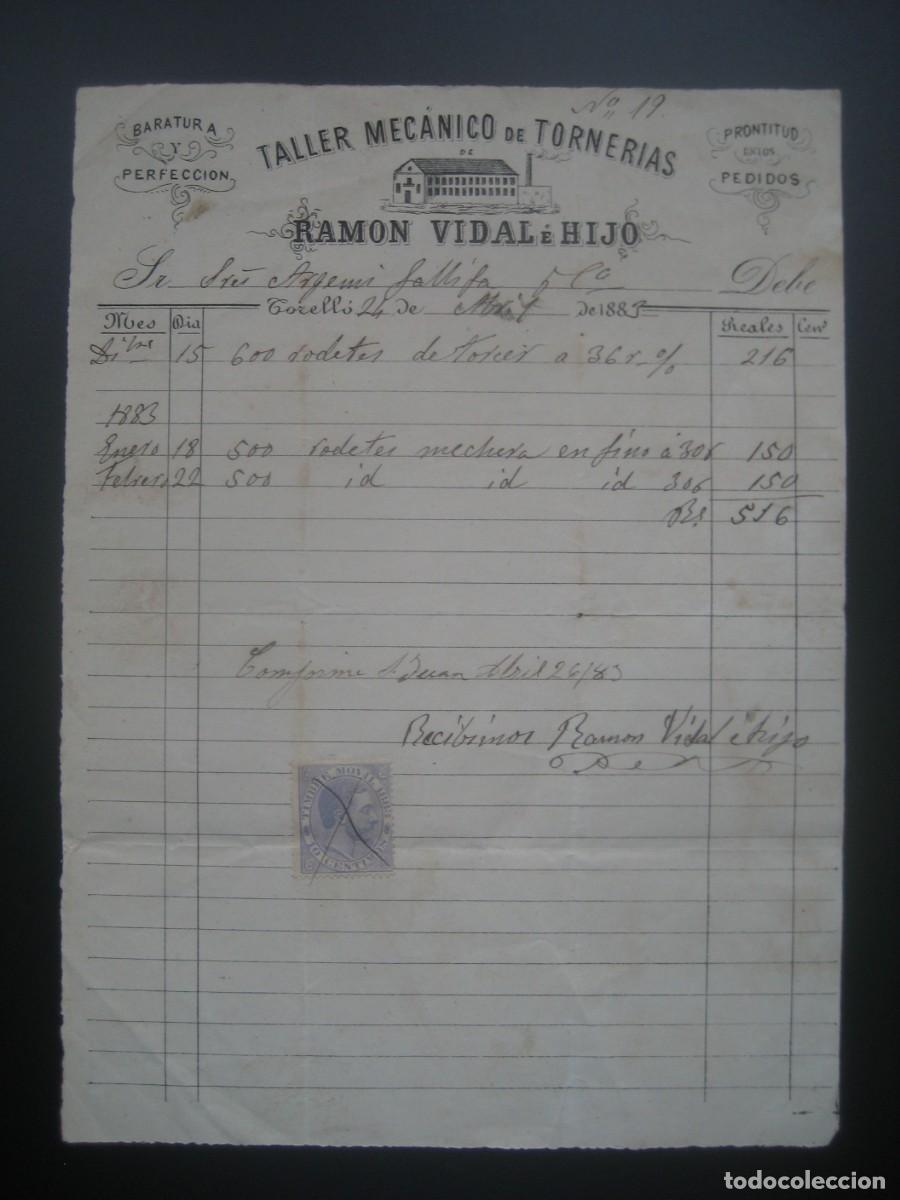 Nº 19.
BARATURA
Y
PERFECCION
TALLER MECÁNICO DE TORNERIAS
DE
RAMON VIDAL É HIJO
PRONTITUD
EN LOS
PEDIDOS
Sr. Sres Argemi Fallifa y Cª Debe
Torelló 24 de Abril de 1883
Mes Dia Reales Cents
Dibre 15 600 rodetes de torcer a 36 r % 216
1883
Enero 18 500 rodetes mechera en fino á 30 r 150
Febrero 22 500 id id id 30 r 150
Rs 516
Comforme Abril 26/83
Recibimos Ramon Vidal é hijo
TIMBRE MOVIL 1883
10 CENTIMOS
todocoleccion